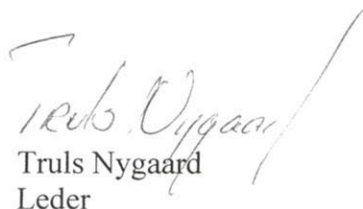 Truls Nygaard
Truls Nygaard
Leder